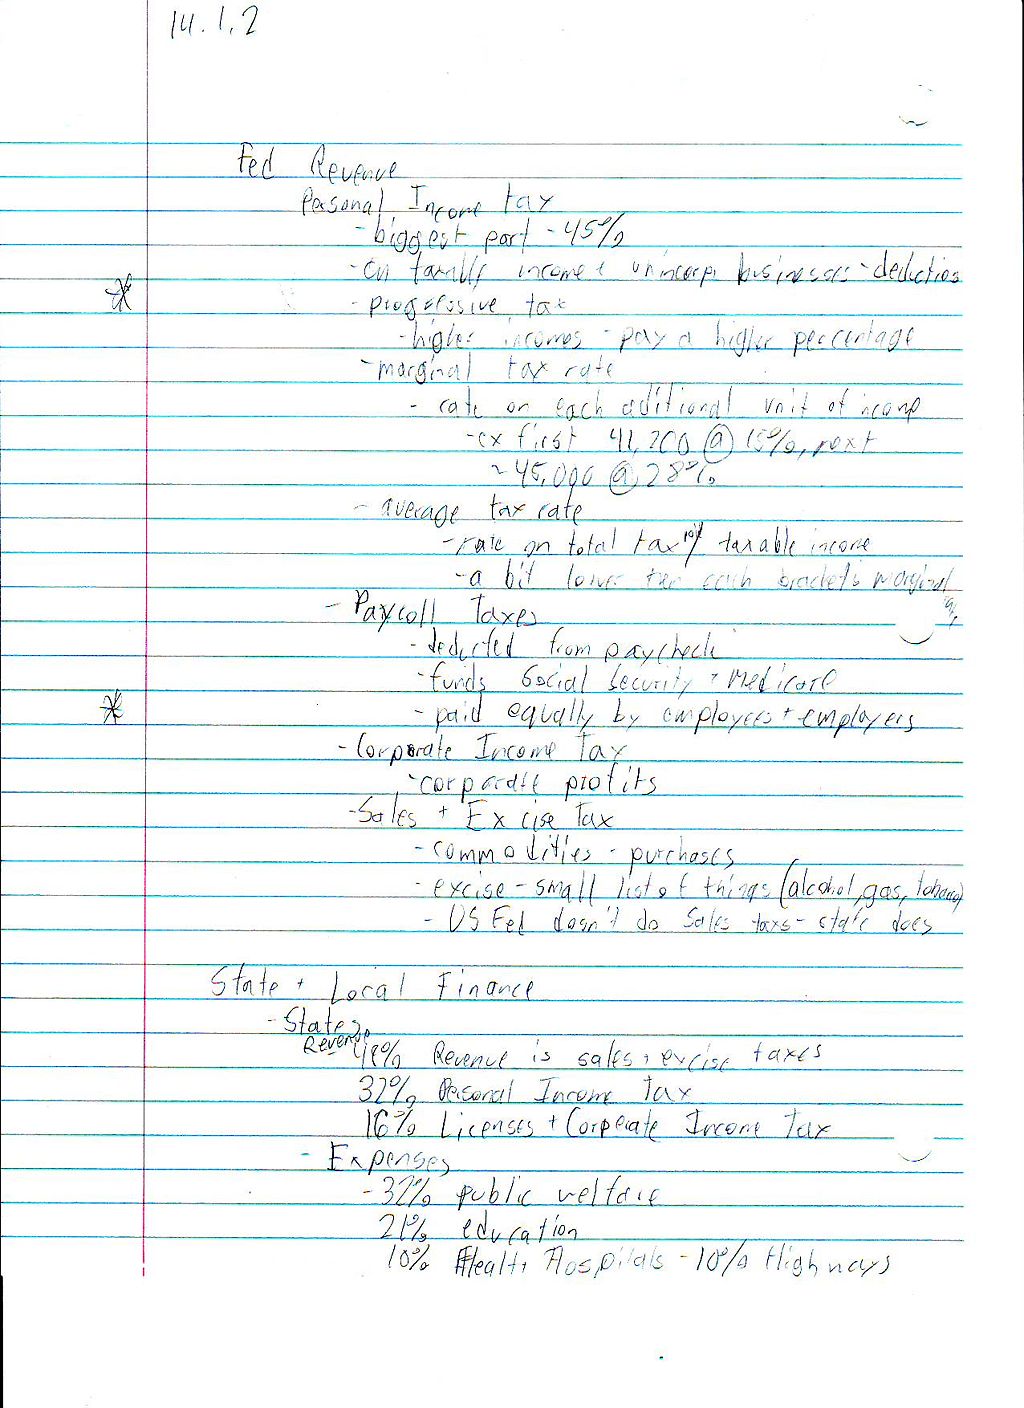 14.1.2
Fed Revenue
Personal Income tax
- biggest part - 45%
- on taxable income + unincorp. businesses - deductions
* - progressive tax
- higher incomes - pay a higher percentage
- marginal tax rate
- rate on each aditional unit of income
- ex first 41,200 @ 15%, next
~45,000 @ 28%
- average tax rate
- rate on total tax / taxable income
- a bit lower than each bracket's marginal
- Payroll Taxes
- deducted from paycheck
- funds Social Security + Medicare
* - paid equally by employees + employers
- Corporate Income Tax
- corporate profits
- Sales + Excise Tax
- commodities - purchases
- excise - small list of things (alcohol, gas, tobacco)
- US Fed doesn't do Sales taxs - state does
State + Local Finance
- States
Revenue
% Revenue is sales + excise taxes
32% Personal Income Tax
16% Licenses + Corporate Income Tax
- Expenses
- 32% public welfare
21% education
10% Health + Hospitals - 10% Highways